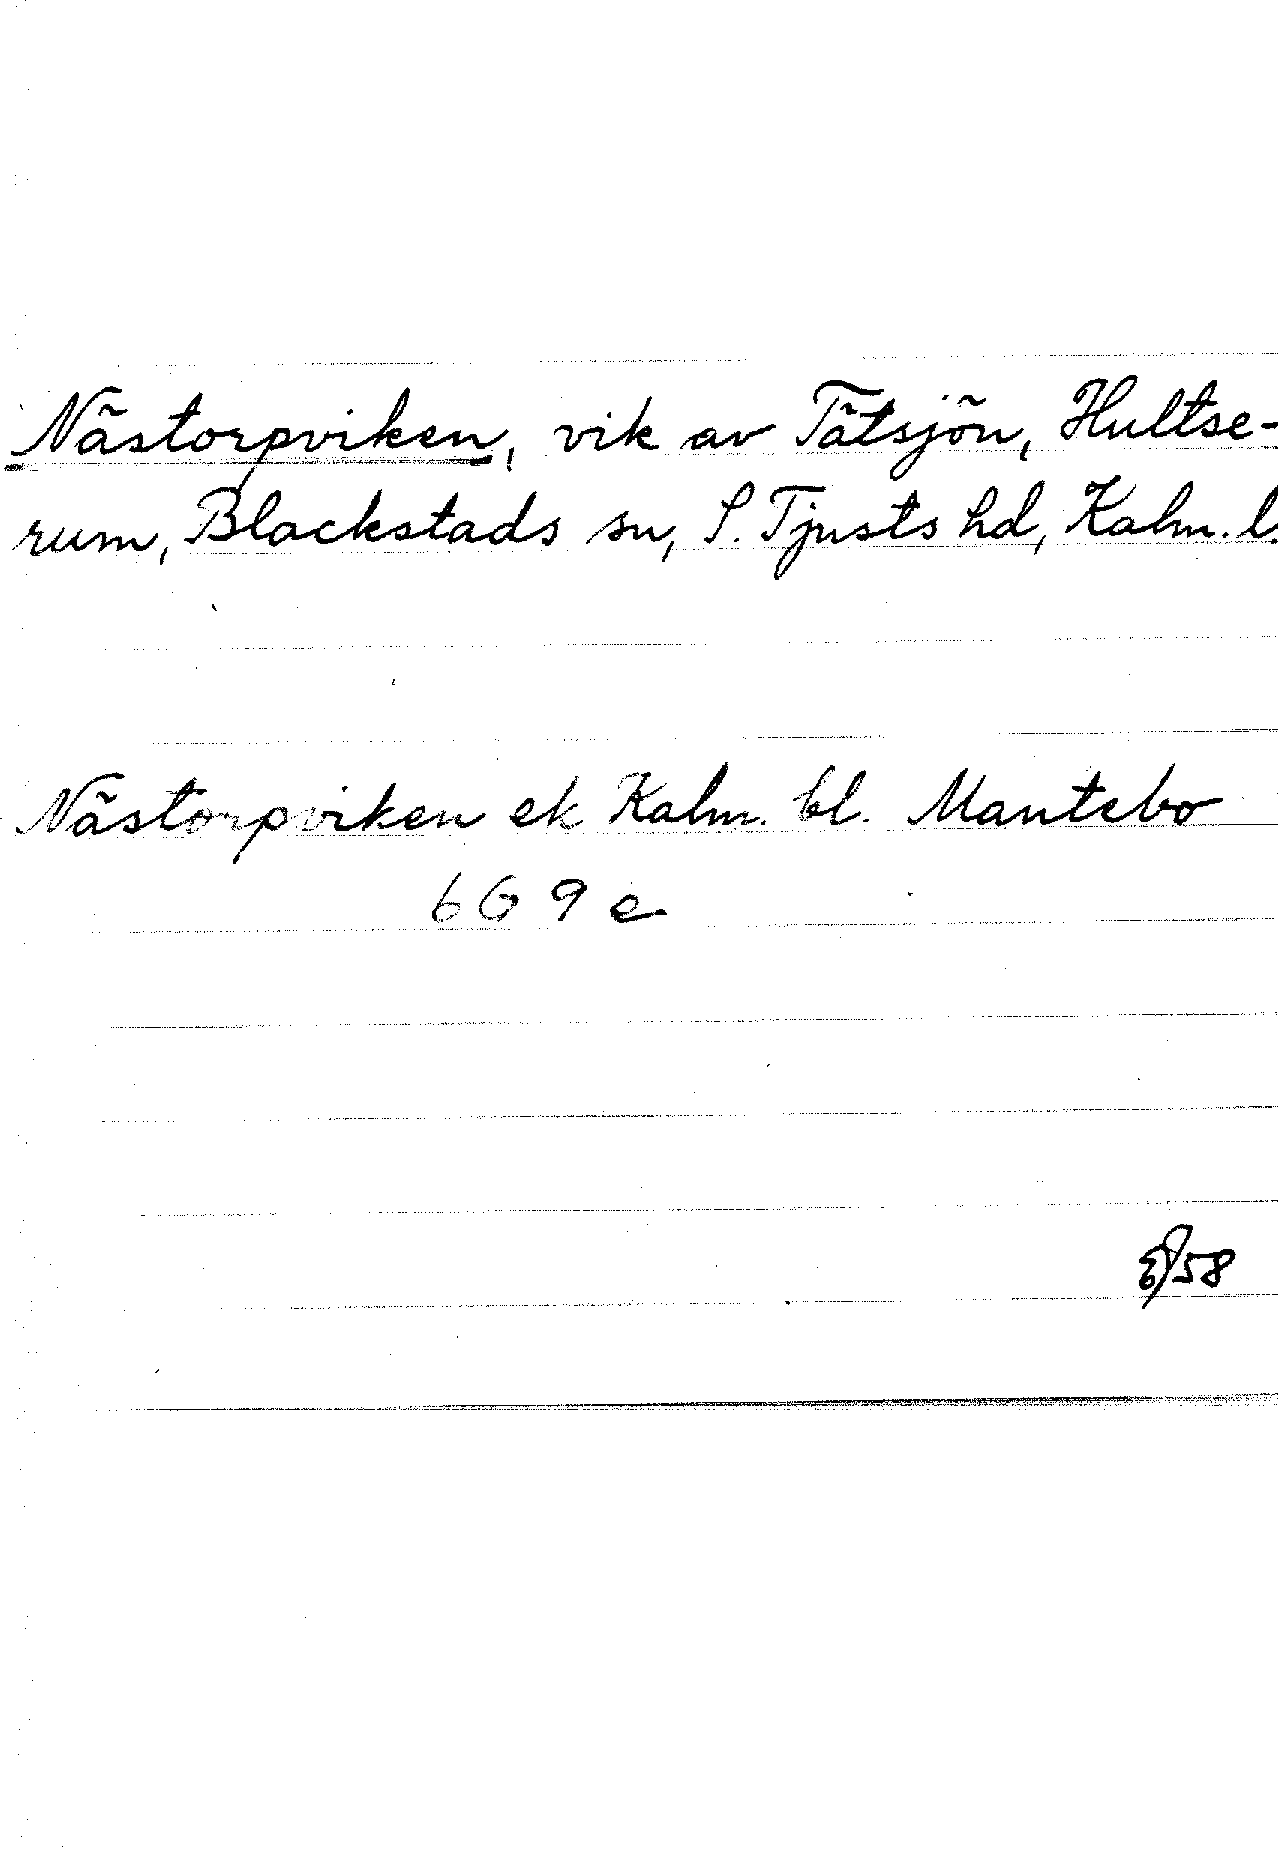 Nästorpviken, vik av Tätsjön, Hultse-
rum, Blackstads sn, S. Tjusts hd, Kalm. l.
Nästorpviken ek Kalm. bl. Mantebo
6 G 9 e
58